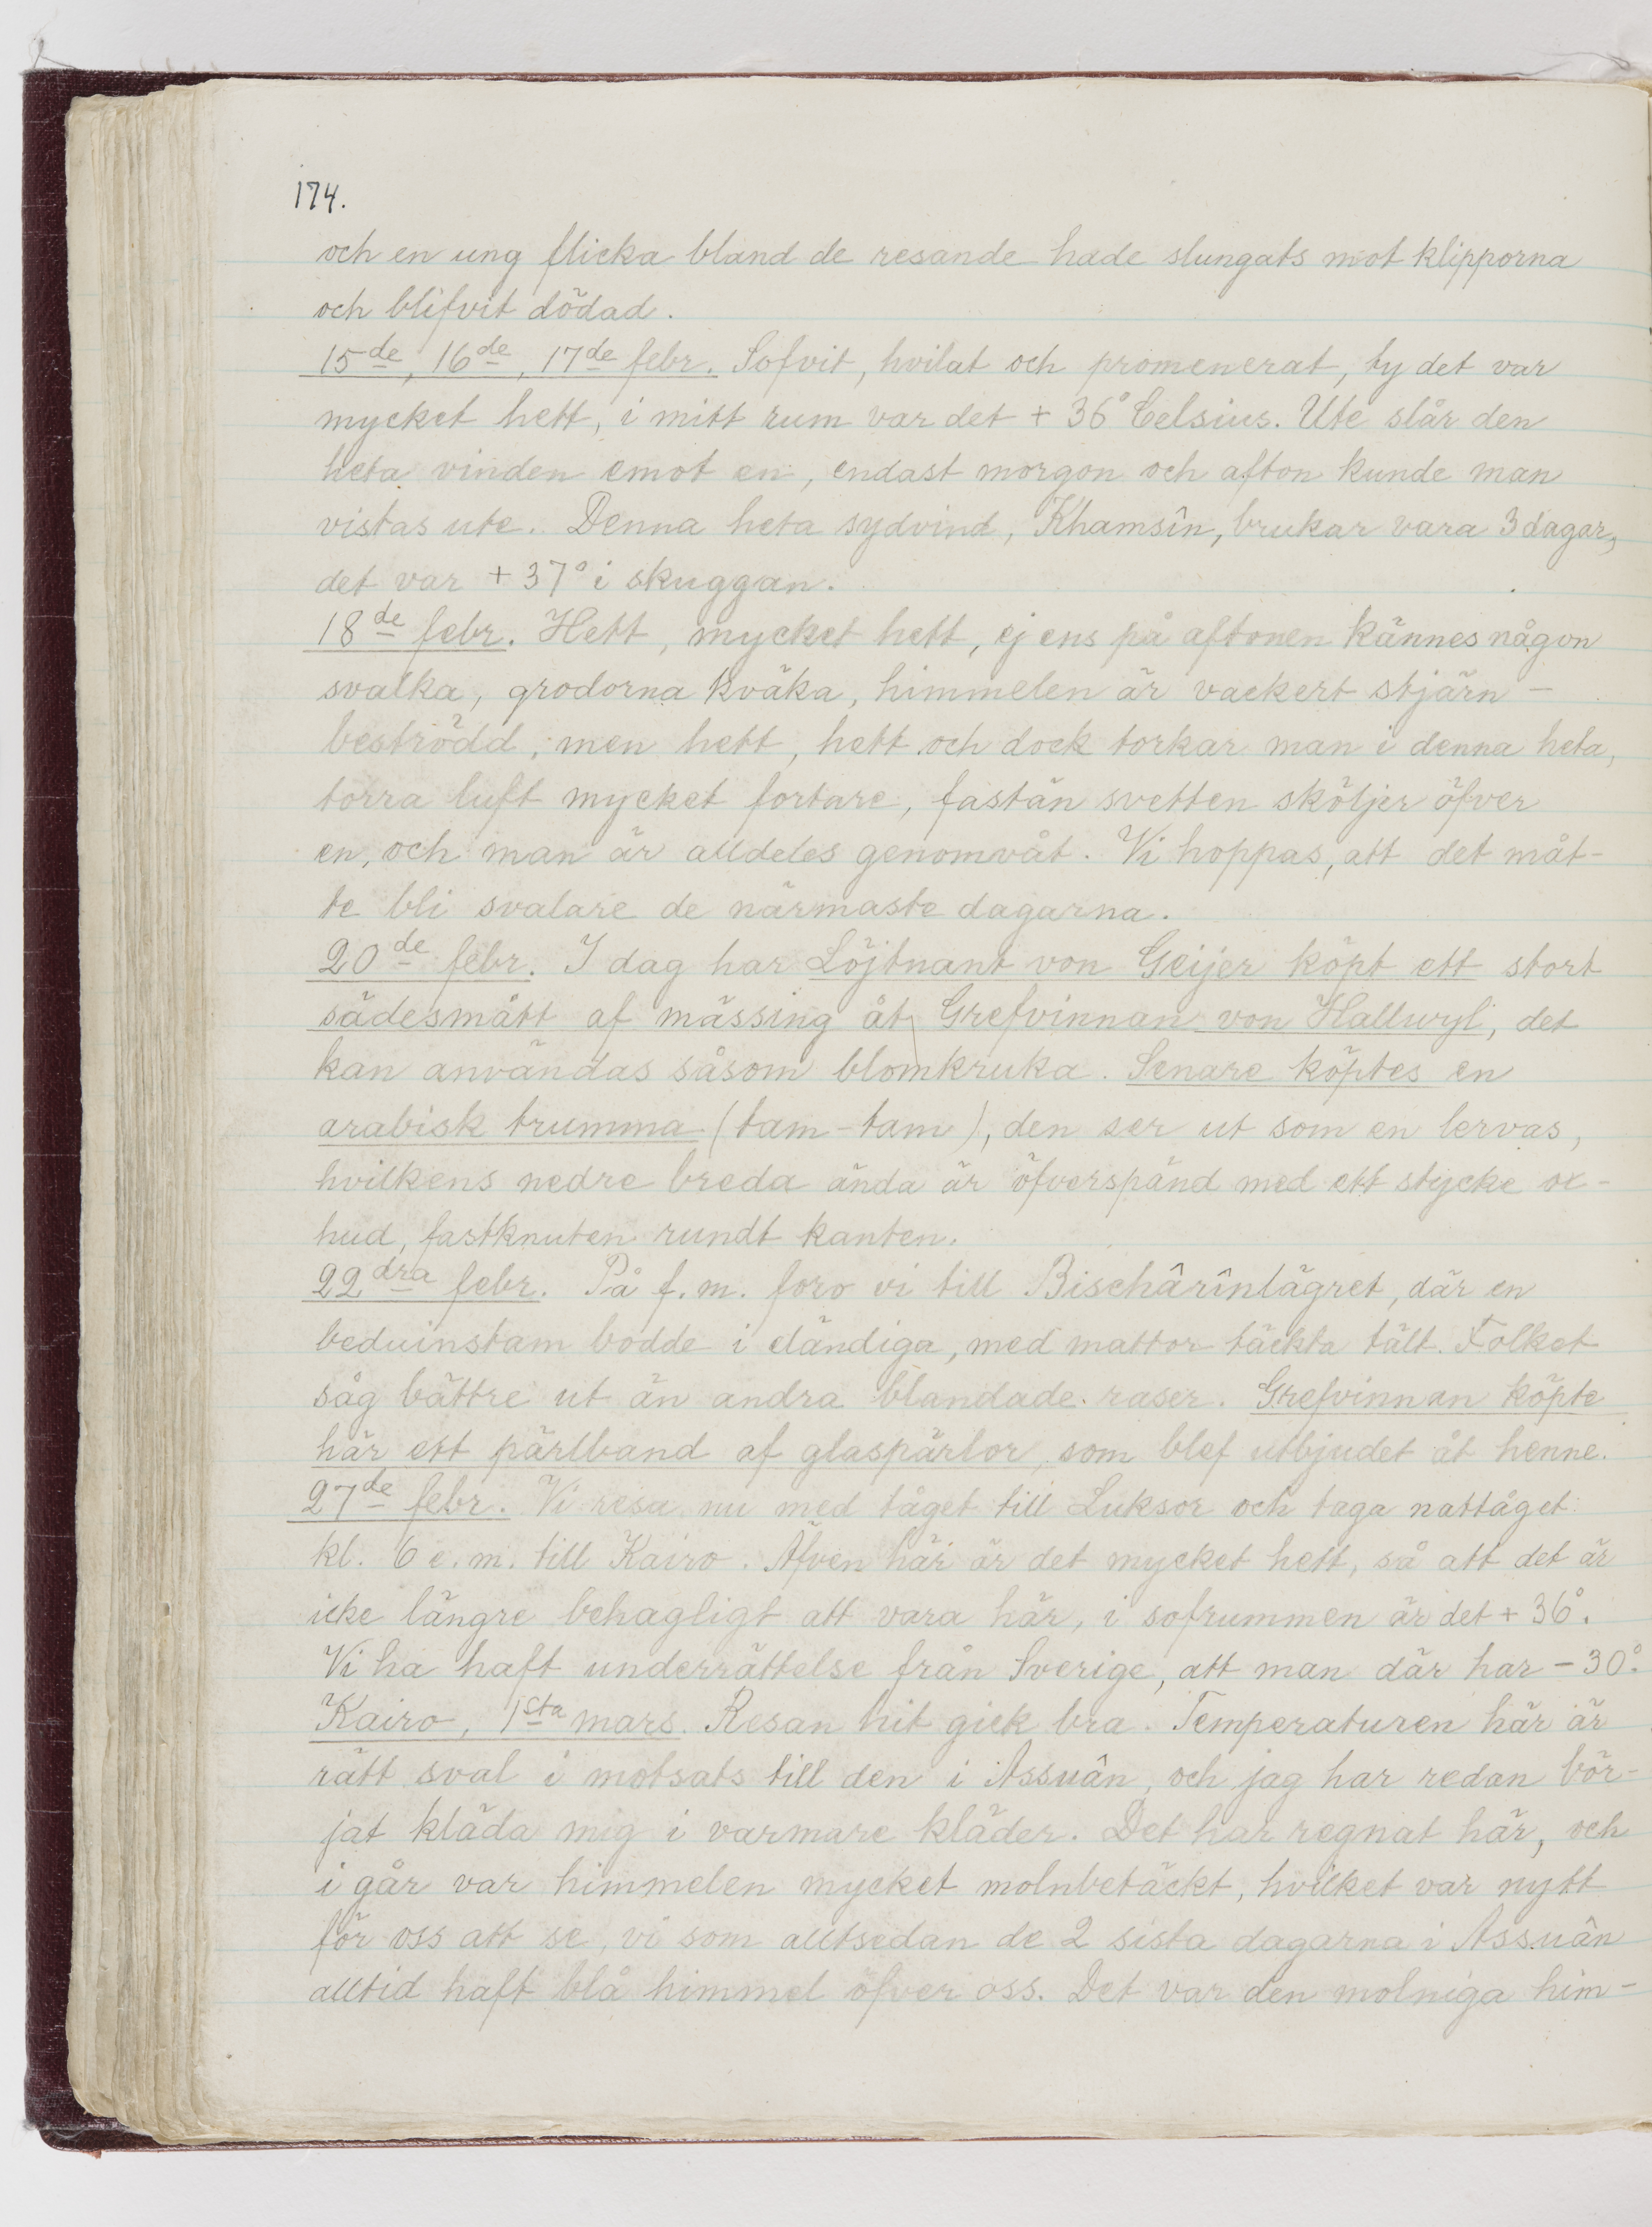 174.
och en ung flicka bland de resande hade slungats mot klipporna
och blifvit dödad.
15de, 16de, 17de febr. Sofvit, hvilat och promenerat, ty det var
mycket hett, i mitt rum var det + 36° Celsius. Ute slår den
heta vinden emot en, endast morgon och afton kunde man
vistas ute. Denna heta sydvind, Khamsîn, brukar vara 3 dagar,
det var + 37° i skuggan.
18de febr. Hett, mycket hett, ej ens på aftonen kännes någon
svalka, grodorna kväka, himmelen är vackert stjärn-
beströdd, men hett, hett och dock torkar man i denna heta,
torra luft mycket fortare, fastän svetten sköljer öfver
en, och man är alldeles genomvåt. Vi hoppas, att det måt-
te bli svalare de närmaste dagarna.
20de febr. I dag har Löjtnant von Geijer köpt ett stort
sädesmått af mässing åt Grefvinnan von Hallwyl, det
kan användas såsom blomkruka. Senare köptes en
arabisk trumma (tam-tam), den ser ut som en lervas,
hvilkens nedre breda ända är öfverspänd med ett stycke ox-
hud, fastknuten rundt kanten.
22dra febr. På f.m. foro vi till Bischârînlägret, där en
beduinstam bodde i eländiga, med mattor täckta tält. Folket
såg bättre ut än andra blandade raser. Grefvinnan köpte
här ett pärlband af glaspärlor, som blef utbjudet åt henne.
27de febr. Vi resa nu med tåget till Luksor och taga nattåget
kl. 6 e.m. till Kairo. Äfven här är det mycket hett, så att det är
icke längre behagligt att vara här, i sofrummen är det + 36°.
Vi ha haft underrättelse från Sverige, att man där har - 30°.
Kairo, 1sta mars. Resan hit gick bra. Temperaturen här är
rätt sval i motsats till den i Assuân, och jag har redan bör-
jat kläda mig i varmare kläder. Det har regnat här, och
i går var himmelen mycket molnbetäckt, hvilket var nytt
för oss att se, vi som alltsedan de 2 sista dagarna i Assuân
alltid haft blå himmel öfver oss. Det var den molniga him-